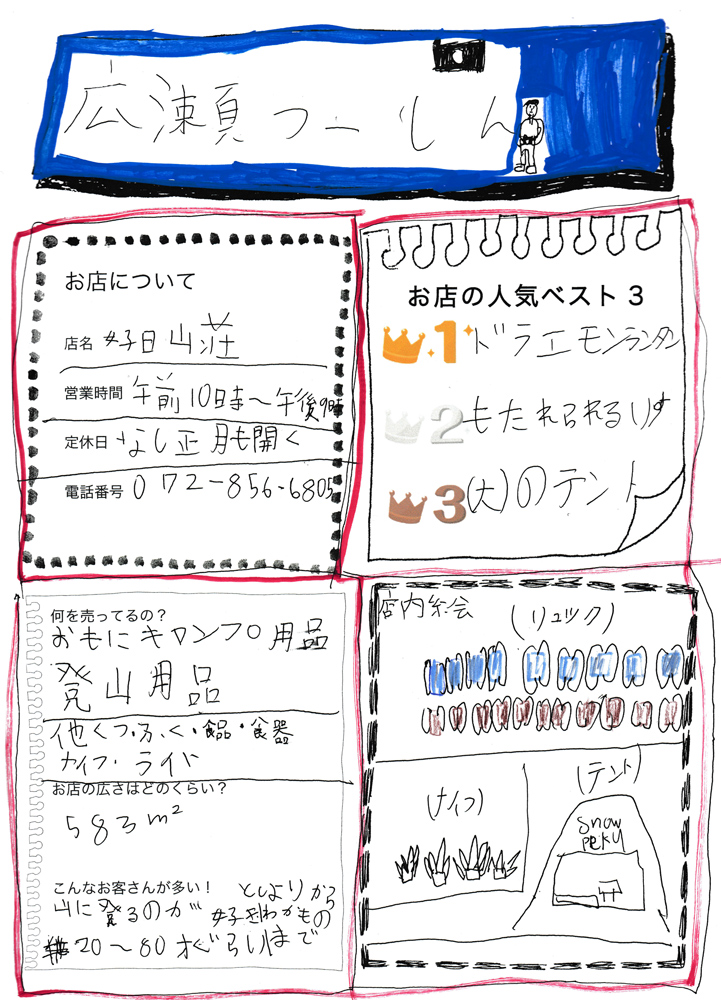 広瀬つーしん
お店について
店名 好日山荘
営業時間 午前10時〜午後9時
定休日 なし正月も開く
電話番号 072-856-6805
お店の人気ベスト3
1 ドラエモンランタン
2 もたれられるいす
3 (大)のテント
何を売ってるの?
おもにキャンプ用品
登山用品
他くつ・ふく・食品・食器
ナイフ・ライト
お店の広さはどのくらい?
583m²
こんなお客さんが多い!
山に登るのが好きわかもの
としよりから
20〜80才ぐらいまで
店内紹会
(リュック)
(ナイフ)
(テント)
snow
peku